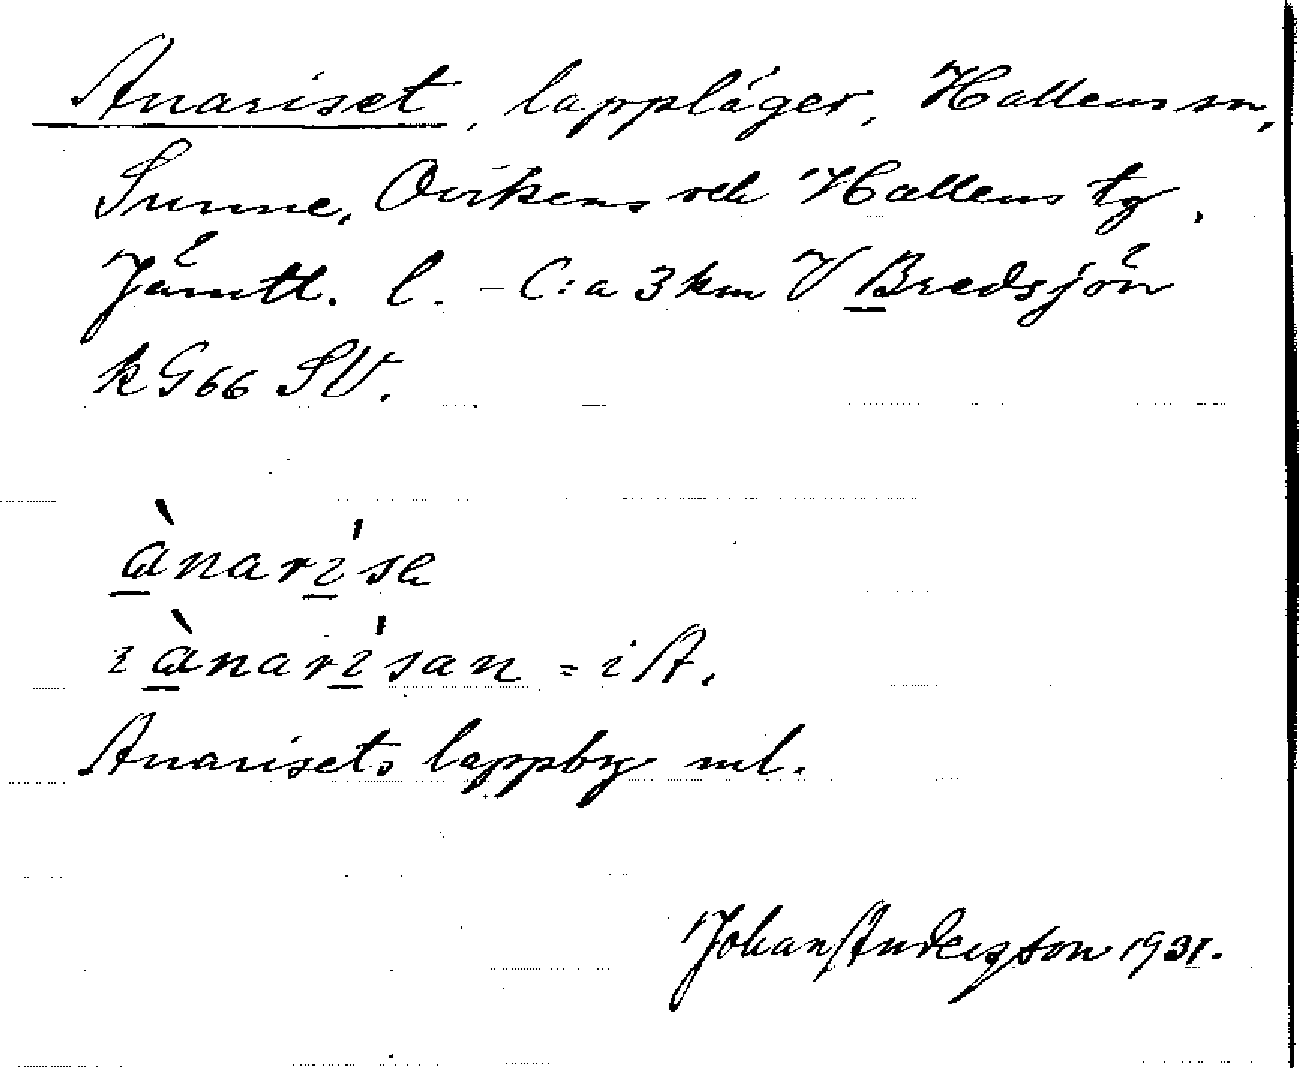 Anariset, lappläger, Hallens sn,
Sunne, Ovikens och Hallens tg,
Jämtl. l. - C:a 3 km V Bredsjön
k G66 SV.
ànarı́sa
ı ànarı́san = i A.
Anarisets lappby ml.
Johan Anderzson 1931.